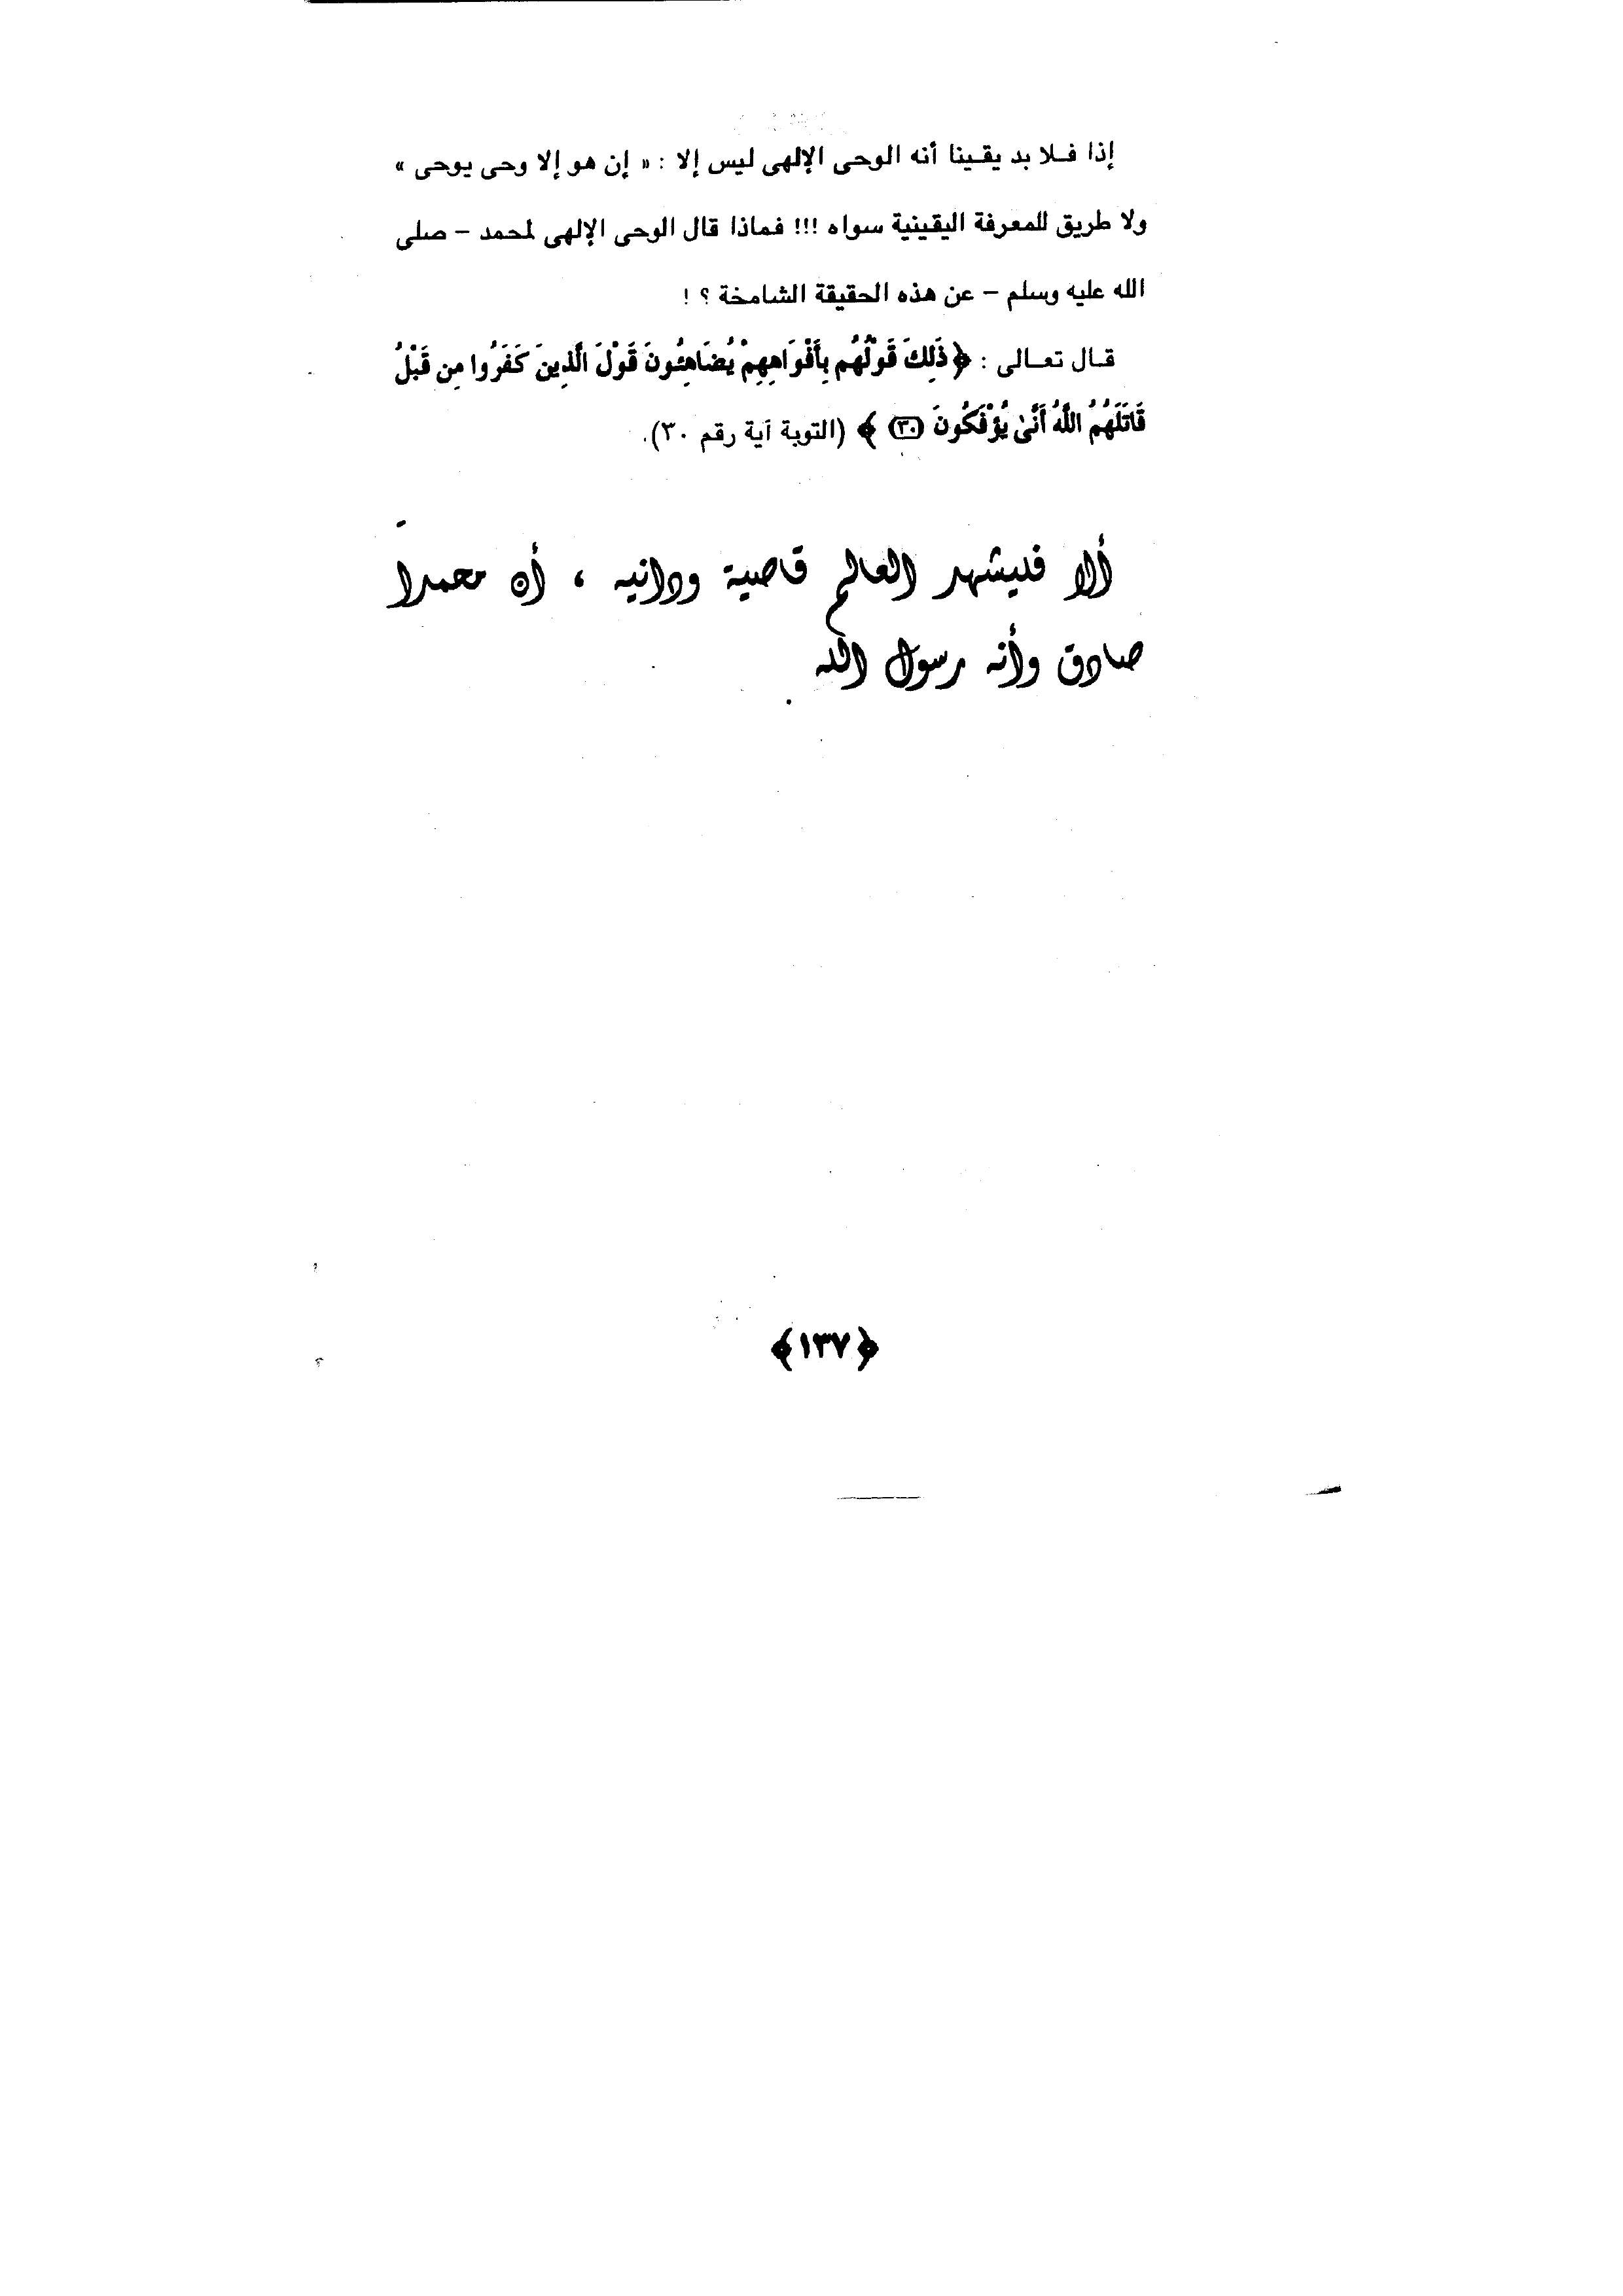 إذا فلا بد يقينا أنه الوحى الإلهى ليس إلا : « إن هو إلا وحى يوحى »
ولا طريق للمعرفة اليقينية سواه !!! فماذا قال الوحى الإلهى لمحمد – صلى
الله عليه وسلم – عن هذه الحقيقة الشامخة ؟ !
قال تعالى : ﴿ ذَلِكَ قَوْلُهُم بِأَفْوَاهِهِمْ يُضَاهِئُونَ قَوْلَ الَّذِينَ كَفَرُوا مِن قَبْلُ
قَاتَلَهُمُ اللَّهُ أَنَّىٰ يُؤْفَكُونَ (٣٠) ﴾ (التوبة آية رقم ٣٠).
ألا فليشهد العالم قاصية ودانيه ، أن محمداً
صادق وأنه رسول الله
﴿١٣٧﴾